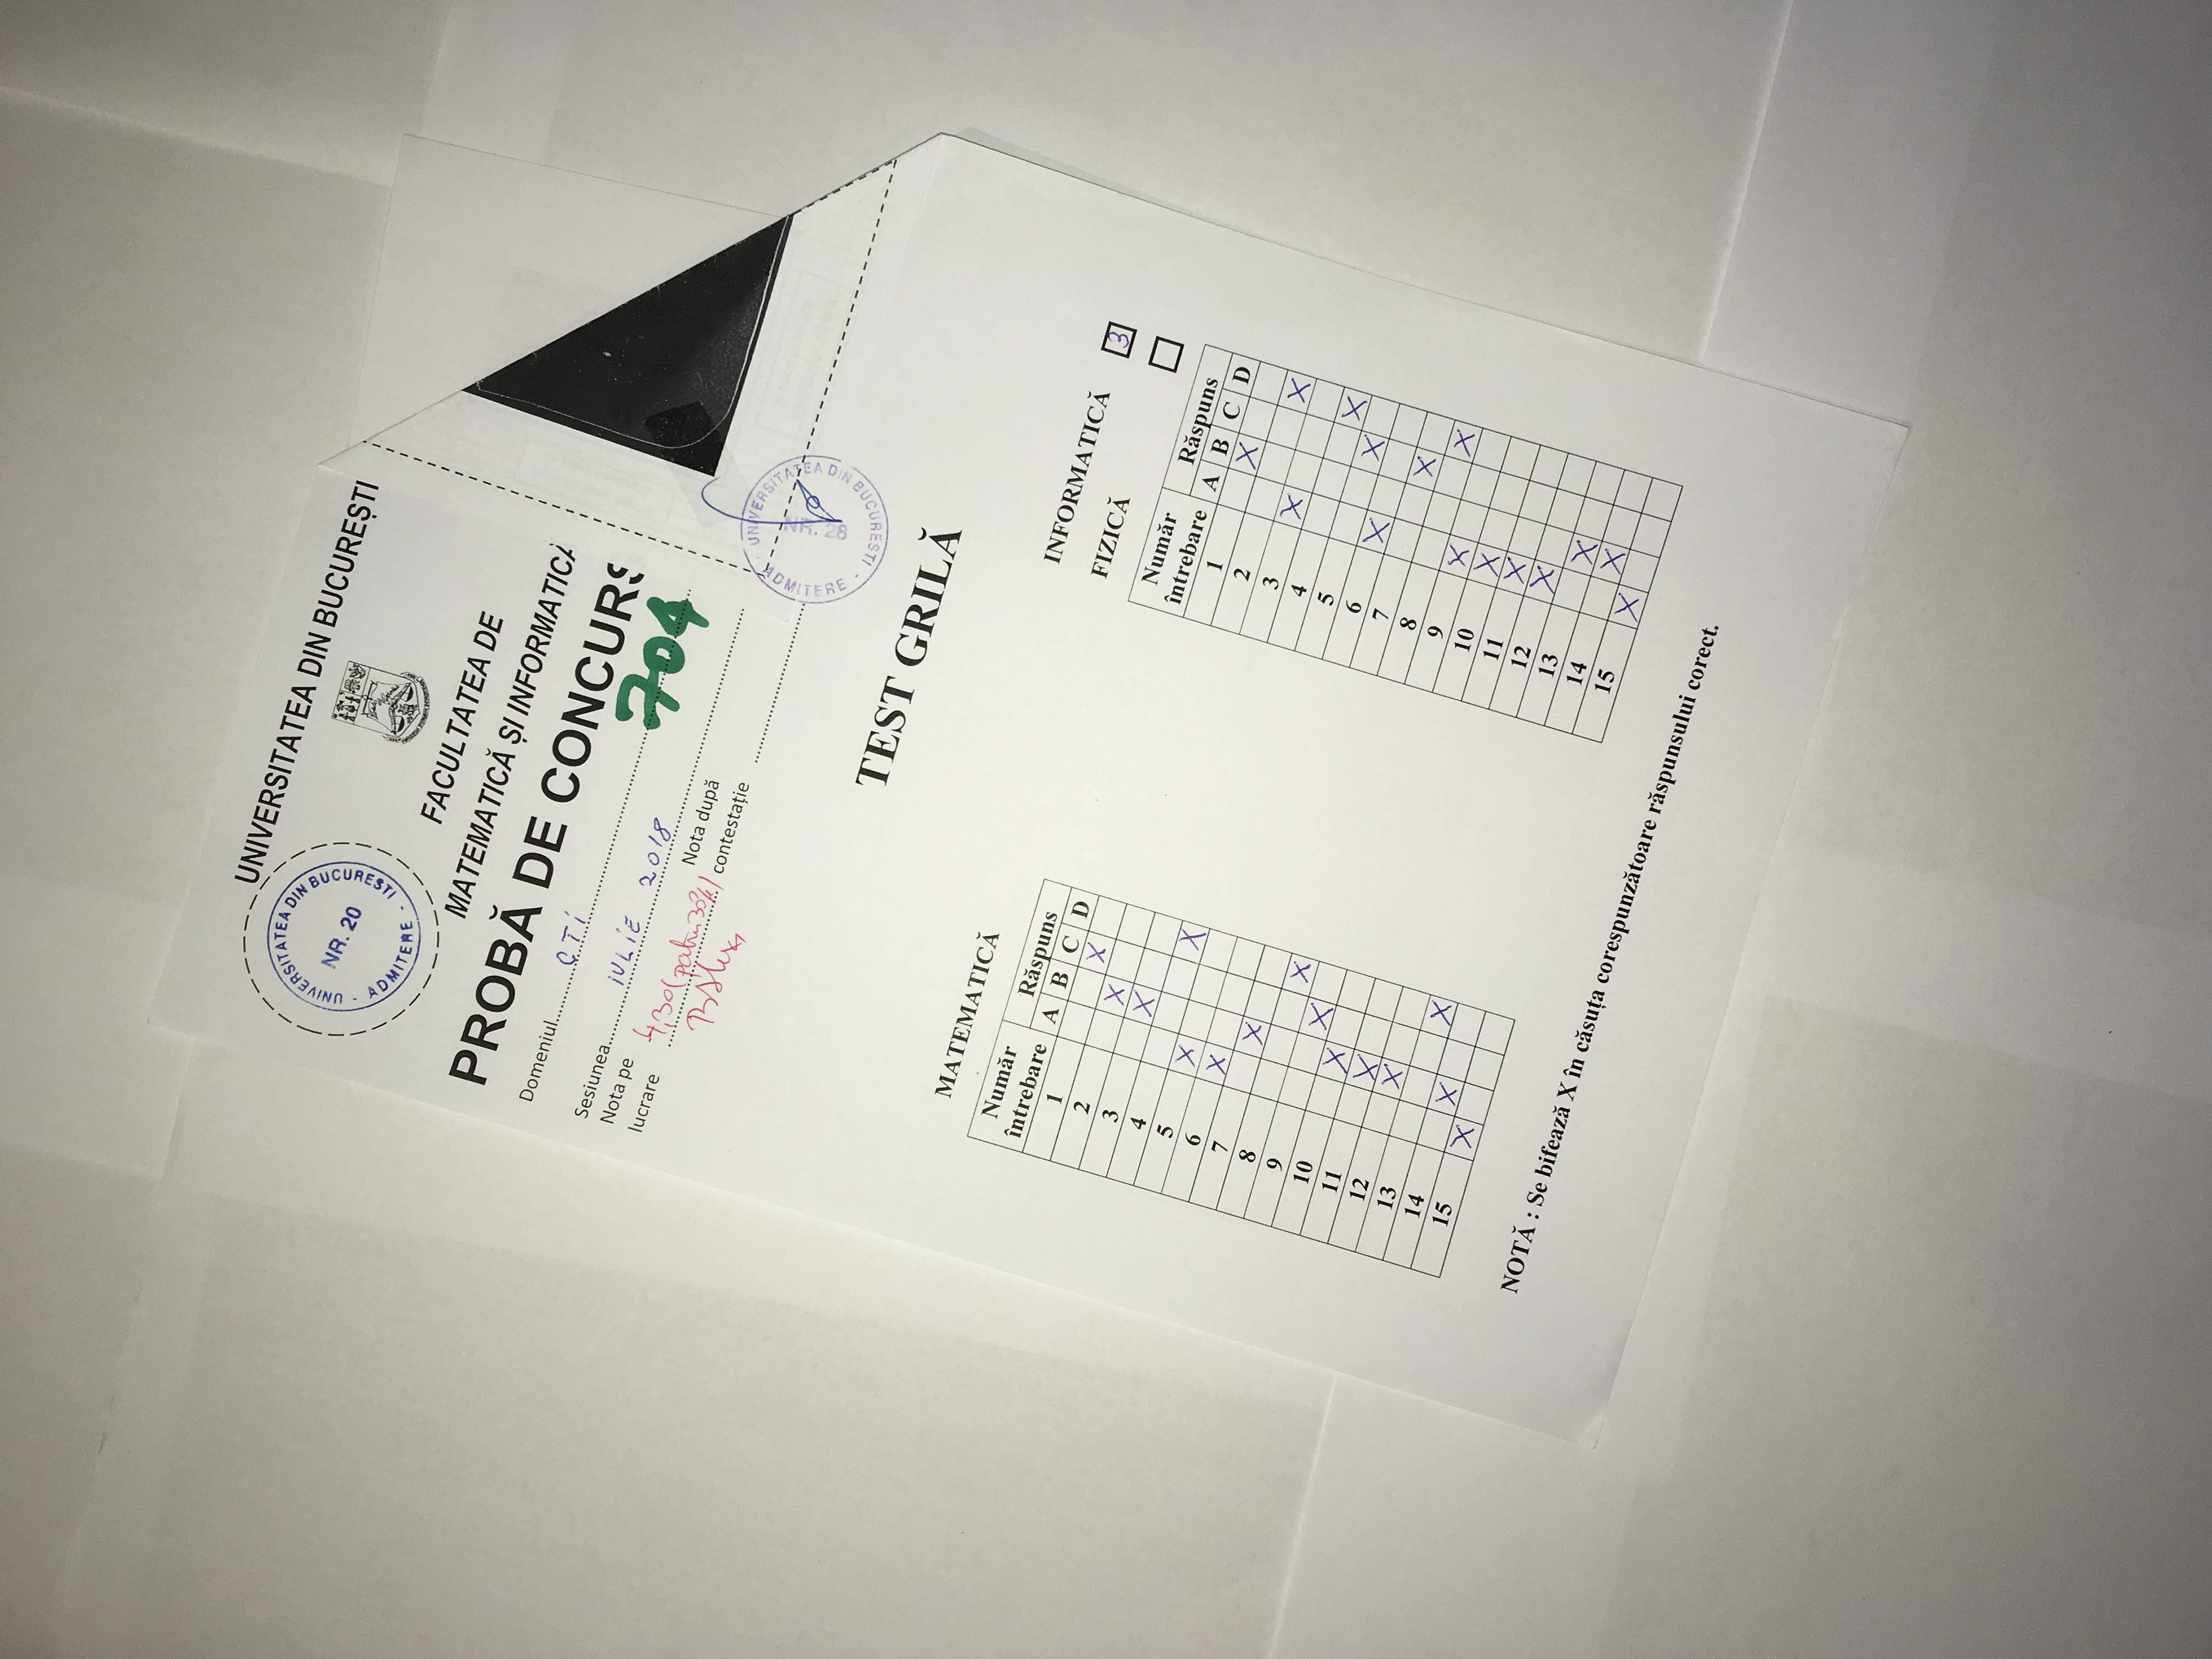 UNIVERSITATEA DIN BUCUREȘTI
UNIVERSITATEA DIN BUCURESTI
NR. 20
ADMITERE
FACULTATEA DE
MATEMATICĂ ȘI INFORMATICĂ
PROBĂ DE CONCURS
Domeniul CTI
704
Sesiunea IULIE 2018
Nota pe lucrare 4,30 (patru 30%)
Nota după contestație
UNIVERSITATEA DIN BUCURESTI
NR. 28
ADMITERE
TEST GRILĂ
MATEMATICĂ
Număr întrebare Răspuns
A B C D
1 X
2 X
3 X
4 X
5 X
6 X
7 X
8 X
9 X
10 X
11 X
12 X
13 X
14 X
15 X
INFORMATICĂ 3
FIZICĂ
Număr întrebare Răspuns
A B C D
1 X
2 X
3 X
4 X
5 X
6 X
7 X
8 X
9 X
10 X
11 X
12 X
13 X
14 X
15 X
NOTĂ : Se bifează X în căsuța corespunzătoare răspunsului corect.